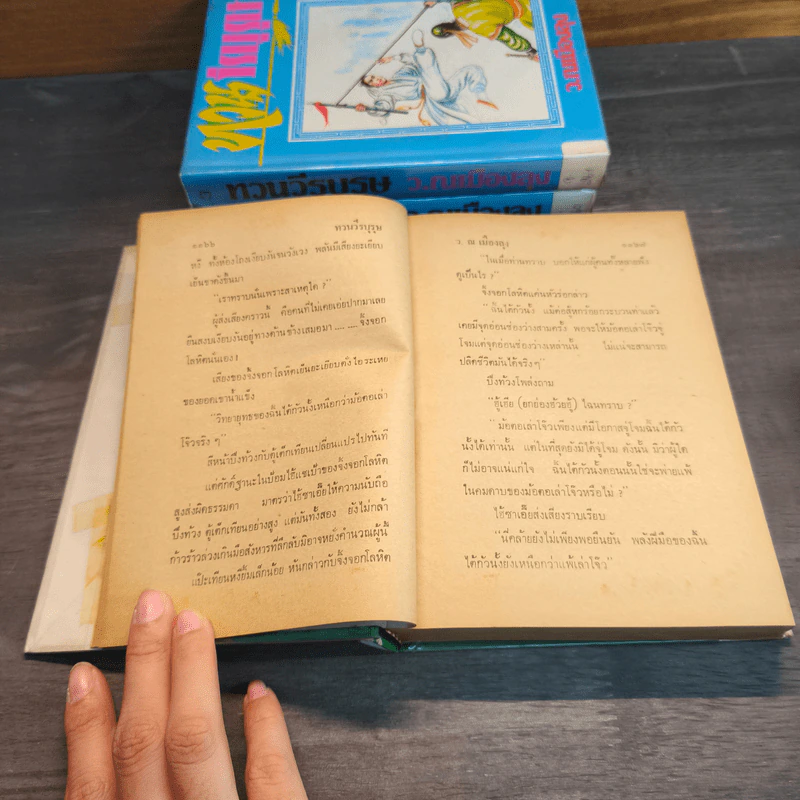 ทวนวีรบุรุษ
ว.ณเมืองลุง
ทวนวีรบุรุษ ว.ณเมืองลุง
ว.ณเมืองลุง
๑๓๖๖ ทวนวีรบุรุษ
หรี่ ทั้งห้องโถงเงียบงันจนวังเวง พลันมีเสียงยะเยียบ
เย็นชาดังขึ้นมา
"เราทราบนั่นเพราะสาเหตุใด ?"
ผู้ส่งเสียงคราวนี้ คือคนที่ไม่เคยเอยปากมาเลย
ยืนสงบเงียบงันอยู่ทางด้านข้างเสมอมา ...... จิ้งจอก
โลหิตนั่นเอง !
เสียงของจิ้งจอกโลหิตเย็นยะเยียบดังไอระเหย
ของยอดเขาน้ำแข็ง
"วิทยายุทธของฉินไต้กัวนั้งเหนือกว่าม้อคอเล่า
โจ๊วจริง ๆ"
สีหน้าบึงท้วงกับตู้เค็กเทียนเปลี่ยนแปรไปทันที
แต่ศักดิ์ฐานะในป้อมไอ้แซเป้าของจิ้งจอกโลหิต
สูงส่งผิดธรรมดา มาตรว่าไท้ซาเอี้ยให้ความนับถือ
บึงท้วง ตู้เค็กเทียนอย่างสูง แต่มันทั้งสอง ยังไม่กล้า
ก้าวร้าวล่วงเกินมือสังหารที่ลึกลับมิอาจหยั่งคำนวณผู้นี้
แป๊ะเทียนหงยิ้มเล็กน้อย หันกล่าวกับจิ้งจอกโลหิต
ว. ณ เมืองลุง ๑๓๖๗
"ในเมื่อท่านทราบ บอกให้แก่ผู้คนทั้งหลายฟัง
ดูเป็นไร ?"
จิ้งจอกโลหิตแค่นหัวร่อกล่าว
"ฉินไต้กัวนั้ง แม้ต่อสู้หกร้อยกระบวนท่าแล้ว
เคยมีจุดอ่อนช่องว่างสามครั้ง พอจะให้ม้อคอเล่าโจ๊วจู่
โจมแต่จุดอ่อนช่องว่างเหล่านั้น ไม่แน่จะสามารถ
ปลิดชีวิตมันได้จริง ๆ"
บึงท้วงโพล่งถาม
"ฮู้เอี้ย (ยกย่องฮ้วยฮู้) ไฉนทราบ ?"
"ม้อคอเล่าโจ๊วเพียงแต่มีโอกาสจู่โจมฉินไต้กัว
นั้งได้เท่านั้น แต่ในที่สุดยังมิได้จู่โจม ดังนั้น มิว่าผู้ใด
ก็ไม่อาจแน่แก่ใจ ฉินไต้กัวนั้งตอนนั้นใช่จะพ่ายแพ้
ในคมดาบของม้อคอเล่าโจ๊วหรือไม่ ?"
ไท้ซาเอี้ยส่งเสียงราบเรียบ
"นี่คล้ายยังไม่เพียงพอยืนยัน พลังฝีมือของฉิน
ไต้กัวนั้งยังเหนือกว่าแพ้เล่าโจ๊ว"